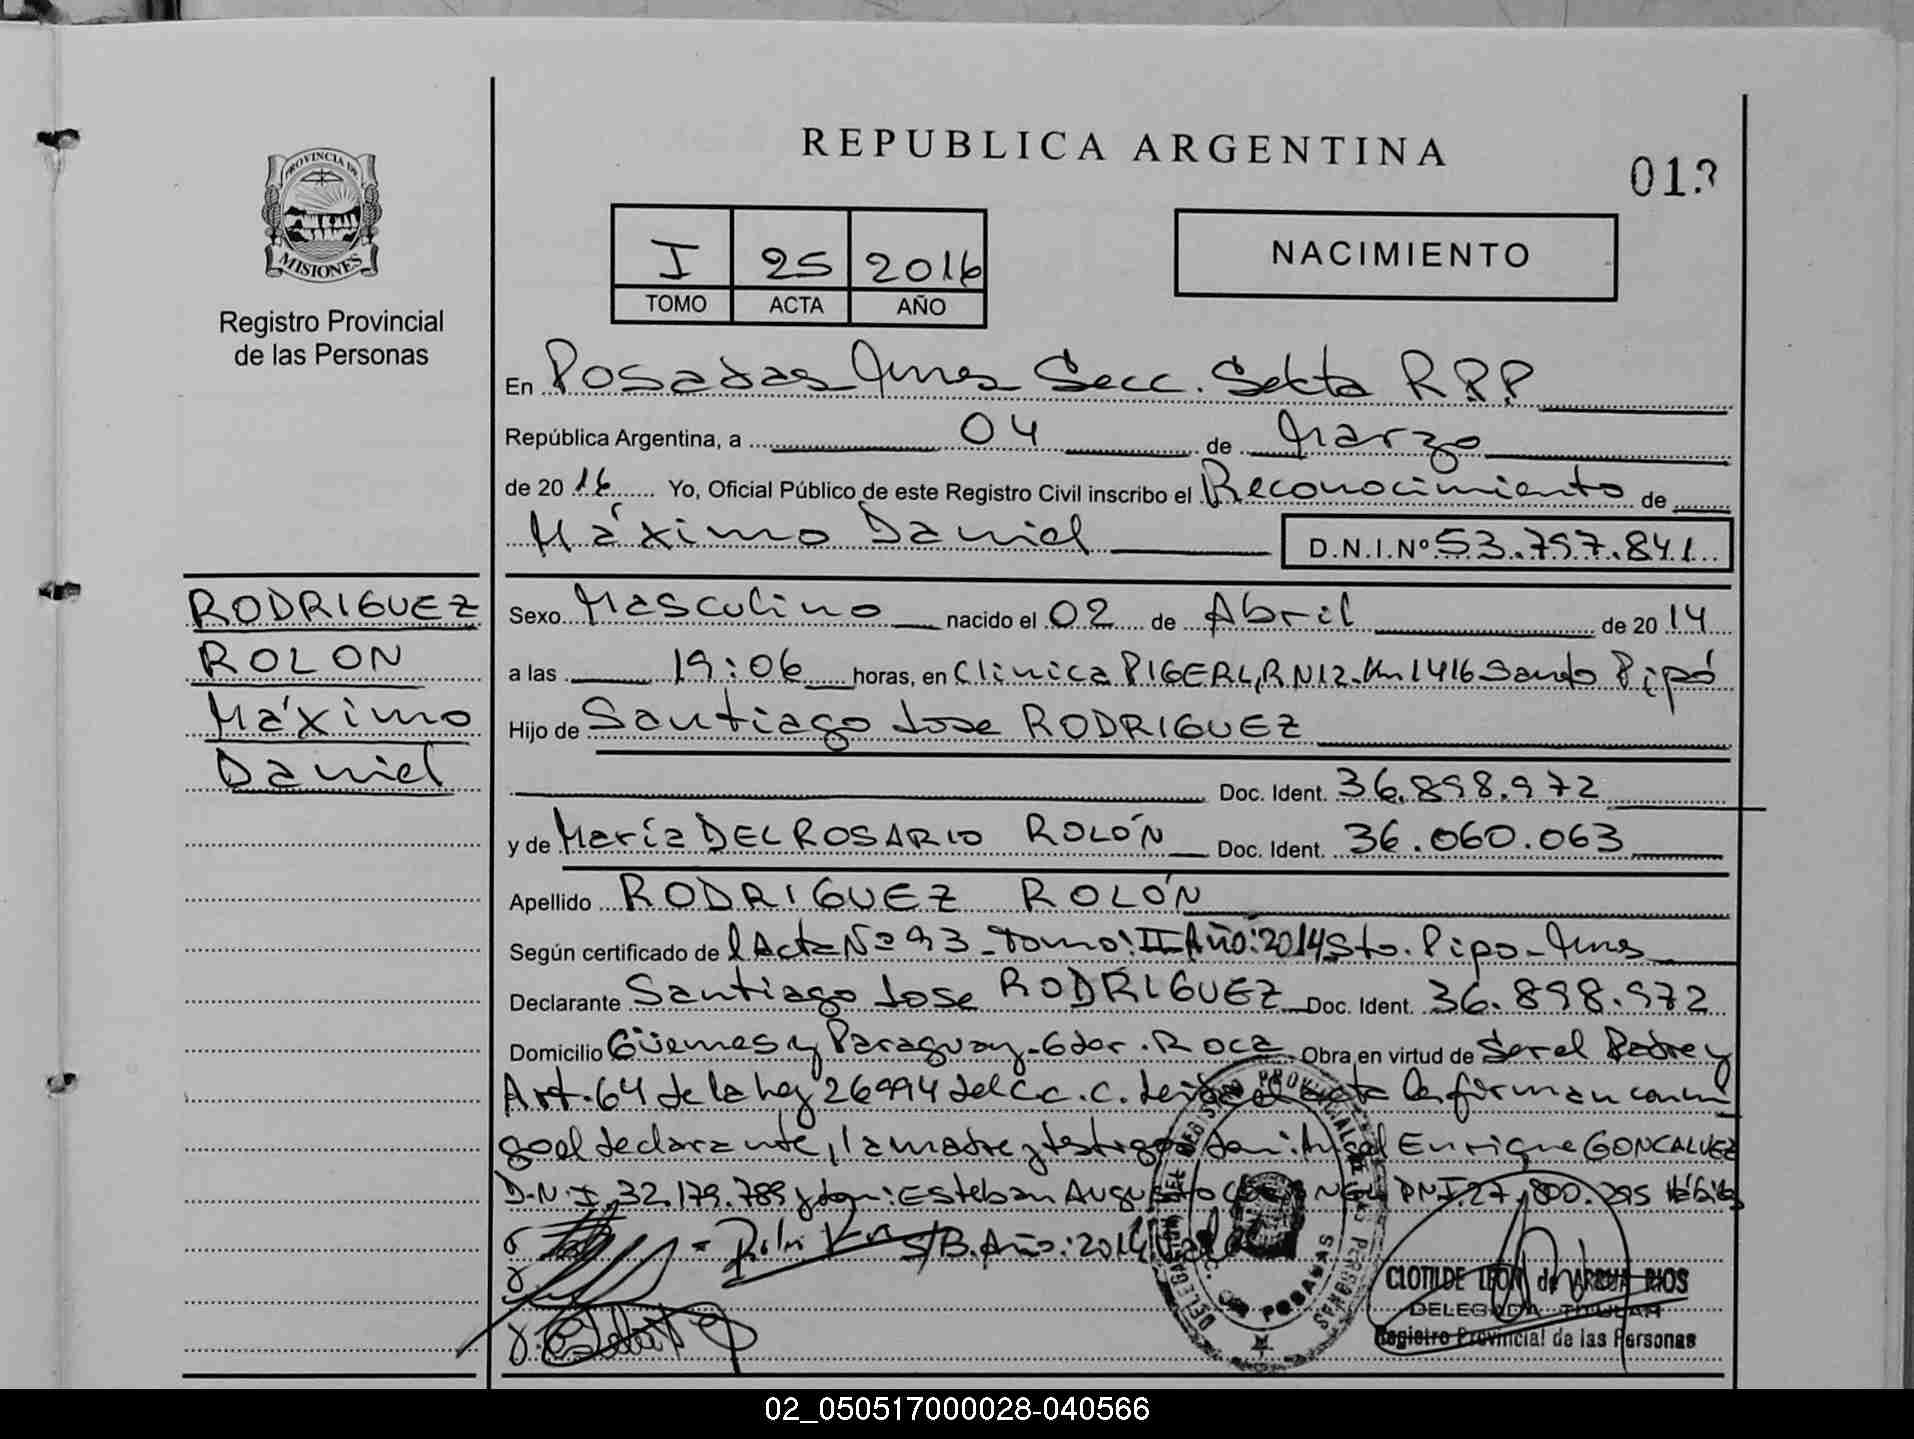 REPUBLICA ARGENTINA
PROVINCIA DE
MISIONES
Registro Provincial
de las Personas
I 25 2016
TOMO ACTA AÑO
NACIMIENTO
En Posadas Mnes Secc. Sexta R.P.P
República Argentina, a 04 de Marzo
de 2016 Yo, Oficial Público de este Registro Civil inscribo el Reconocimiento de
Máximo Daniel D.N.I.Nº 53.797.841
RODRIGUEZ
ROLON
Máximo
Daniel
Sexo Masculino nacido el 02 de Abril de 2014
a las 19:06 horas, en Clinica PIGERL, RN12-Km 1416 Santo Pipó
Hijo de Santiago Jose RODRIGUEZ
Doc. Ident. 36.898.972
y de María DEL ROSARIO ROLÓN Doc. Ident. 36.060.063
Apellido RODRIGUEZ ROLÓN
Según certificado de l Acta Nº 93-Tomo:II-Año:2014 Sto. Pipo-Mnes
Declarante Santiago Jose RODRIGUEZ Doc. Ident. 36.898.972
Domicilio Güemes y Paraguay-Gdor. Roca Obra en virtud de Ser el Padre y
Art. 64 de la Ley 26994 del C.C.C. Leida el acta la firman conmi
go el declarante, la madre y testigos don: Angel Enrique GONCALVEZ
D.N.I. 32.179.789 y don: Esteban Augusto DNI. 27.800.295
S/B. Año: 2014 Vale
CLOTILDE LEON de ARRUA RIOS
DELEGADA TITULAR
Registro Provincial de las Personas
POSADAS
02_050517000028-040566